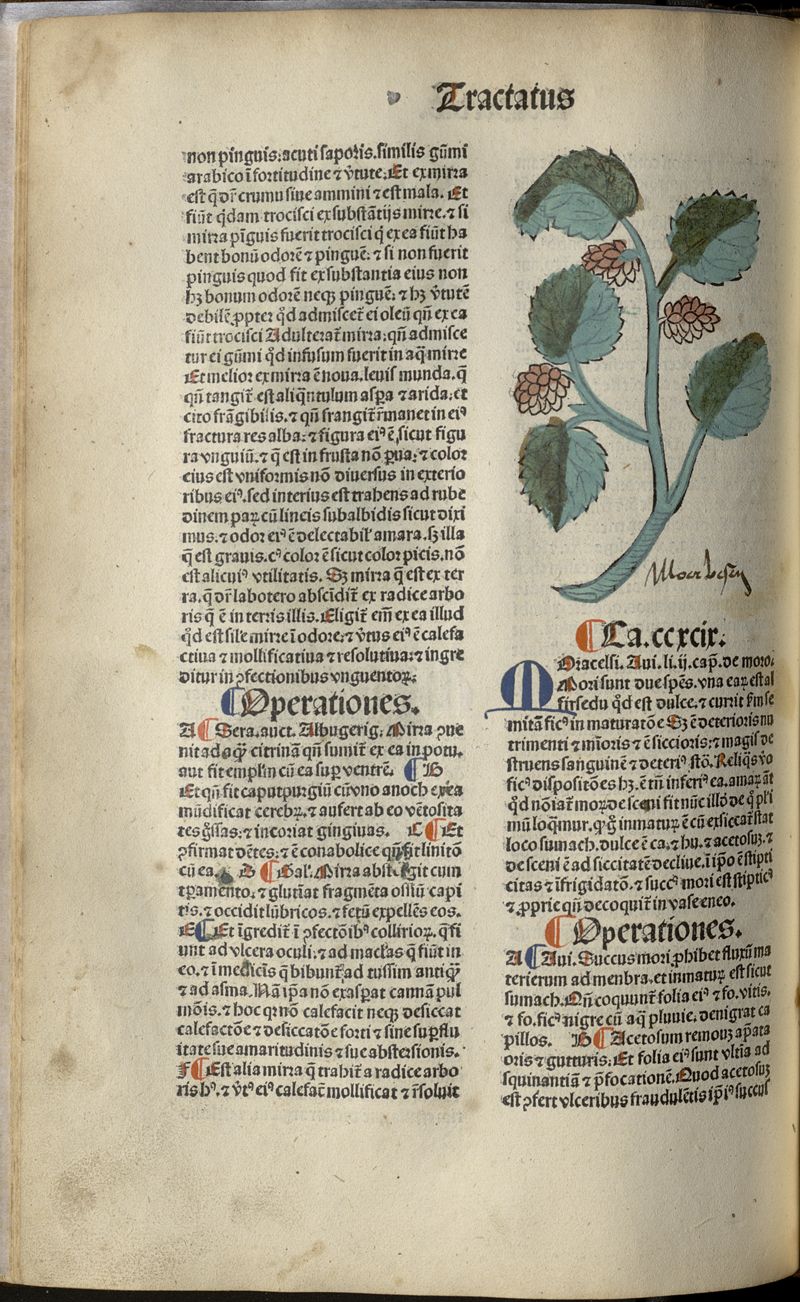 Tractatus
non pinguis: acuti saporis. similis gūmi
arabico ī fortitudine ⁊ v̄tute. Et ex mirra
est q̄ dr̄ crumu siue ammini ⁊ est mala. Et
fiūt q̄dam trocisci ex substātijs mirre. ⁊ si
mirra pīguis fuerit trocisci q̄ ex ea fiūt ha
bent bonū odorē ⁊ pinguē: ⁊ si non fuerit
pinguis quod fit ex substantia eius non
hꝫ bonum odorē neqꝫ pinguē: ⁊ hꝫ v̄tutē
debilē ꝓpter qd̄ admiscet̄ ei oleū qn̄ ex ea
fiūt trocisci Adulterat̄ mirra: qn̄ admisce
tur ei gūmi qd̄ infusum fuerit in aq̄ mirre
Et melior ex mirra ē noua. leuis munda. q̄
qn̄ tangit̄ est aliq̄ntulum aspa ⁊ arida: et
cito frāgibilis. ⁊ qn̄ frangit̄ r̄manet in eiꝰ
fractura res alba: ⁊ figura eiꝰ ē sicut figu
ra vnguiū. ⁊ q̄ est in frusta nō ꝑua: ⁊ color
eius est vniformis nō diuersus in exterio
ribus eiꝰ. sed interius est trahens ad rube
dinem paꝝ cū lineis subalbidis sicut dixi
mus. ⁊ odor eiꝰ ē delectabil' amara. sꝫ illa
q̄ est grauis. cꝰ color ē sicut color picis. nō
est alicuiꝰ vtilitatis. Sꝫ mirra q̄ est ex ter
ra. q̄ dr̄ labotero abscīdit̄ ex radice arbo
ris q̄ ē in terris illis. Eligit̄ em̄ ex ea illud
qd̄ est sil'e mirre ī odore: ⁊ v̄tus eiꝰ ē calefa
ctiua ⁊ mollificatiua ⁊ resolutiua: ⁊ ingre
ditur in ꝯfectionibus vnguentoꝝ.
¶ Operationes.
A ¶ Sera. auct. Albugerig. Mirra ꝯue
nit ad aq̄ꝫ citrinā qn̄ sumit̄ ex ea in potu.
aut fit emplm̄ cū ea suꝑ ventrē. ¶ B
Et qn̄ fit caputpurgiū cū vno anoch ex ea
mūdificat cerebꝝ. ⁊ aufert ab eo vētosita
tes g̊ssas: ⁊ incoriat gingiuas. C ¶ Et
ꝯfirmat dētes: ⁊ ē conabolice qn̄ fit linitō
cū ea. D ¶ Gal'. Mirra abstergit cum
tꝑamēto. ⁊ glutiāt fragmēta ossiū capi
tis. ⁊ occidit lūbricos. ⁊ fetū expellēs eos.
E ¶ Et īgredit̄ ī ꝯfectōibꝰ collirioꝝ. q̄ fi
unt ad vlcera oculi: ⁊ ad maclas q̄ fiūt in
eo. ⁊ ī medicīs q̄ bibunt̄ ad tussim antiq̄ꝫ
⁊ ad asma. Nā ip̄a nō exaspat cannā pul
mōis. ⁊ hoc qꝛ nō calefacit neqꝫ desiccat
calefactōe ⁊ desiccatōe forti ⁊ sine suꝑflu
itate sue amaritudinis ⁊ sue abstersionis.
F ¶ Est alia mirra q̄ trahit̄ a radice arbo
ris hꝰ. ⁊ v̄tꝰ eiꝰ calefacē mollificat ⁊ r̄soluit
¶ Ca. ccxcix.
M Oracelsi. Aui. li. ij. cap̄. de moro.
Mori sunt due spēs. vna eaꝝ est al
firsedu qd̄ est dulce. ⁊ currit km̄ se
mitā ficꝰ in maturatōe Sꝫ ē deterioris nu
trimenti ⁊ mīoris ⁊ ē siccioris: ⁊ magis de
struens sanguinē ⁊ deteriꝰ stō. Reliq̄s vo
ficꝰ dispositōes hꝫ. ē tn̄ inferiꝰ ea. amaꝝ āt
qd̄ nōiat̄ moꝝ de sceni fit nūc illō de q̄ pli
mū loq̄mur. ꝙ ḡ inmatuꝝ ē cū exsiccat̄ stat
loco sumach. dulce ē ca. ⁊ hu. ⁊ acetosuꝫ. ⁊
de sceni ē ad siccitatē decliue. ī ip̄o ē stipti
citas ⁊ īfrigidatō. ⁊ succꝰ mori est stipticꝰ
⁊ ꝓprie qn̄ decoquit̄ in vase eneo.
¶ Operationes.
A ¶ Aui. Succus mori ꝓhibet fluxū ma
terierum ad menbra. et inmatuꝝ est sicut
sumach. Qn̄ coquunt̄ folia eiꝰ ⁊ fo. vitis.
⁊ fo. ficꝰ nigre cū aq̄ pluuie. denigrat ca
pillos. B ¶ Acetosum remouꝫ ap̄ata
oris ⁊ gutturis: Et folia eiꝰ sunt vltia ad
squinantiā ⁊ p̄focationē. Quod acetosuꝫ
est ꝯfert vlceribus fraudulētis ip̄iꝰ succus